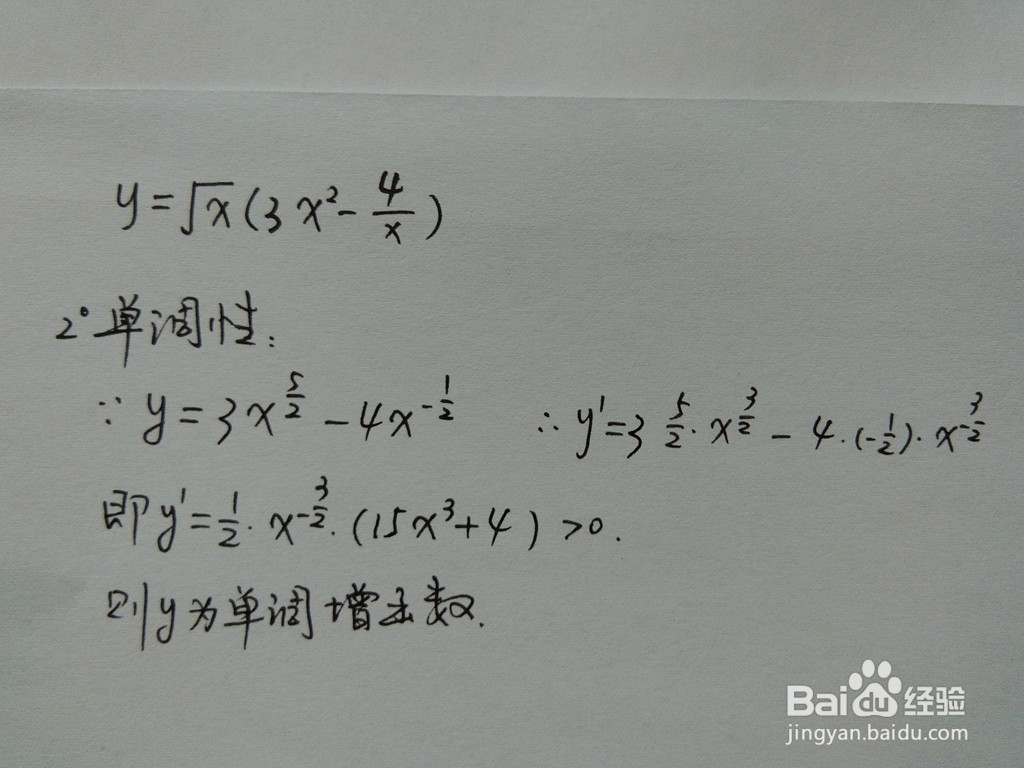 y=√x(3x²-4/x)
2°单调性:
∵ y=3x^{5/2}-4x^{-1/2} ∴ y'=3 5/2·x^{3/2}-4·(-1/2)·x^{-3/2}
即y'=1/2·x^{-3/2}·(15x³+4)>0.
则y为单调增函数.
Baidu经验
jingyan.baidu.com